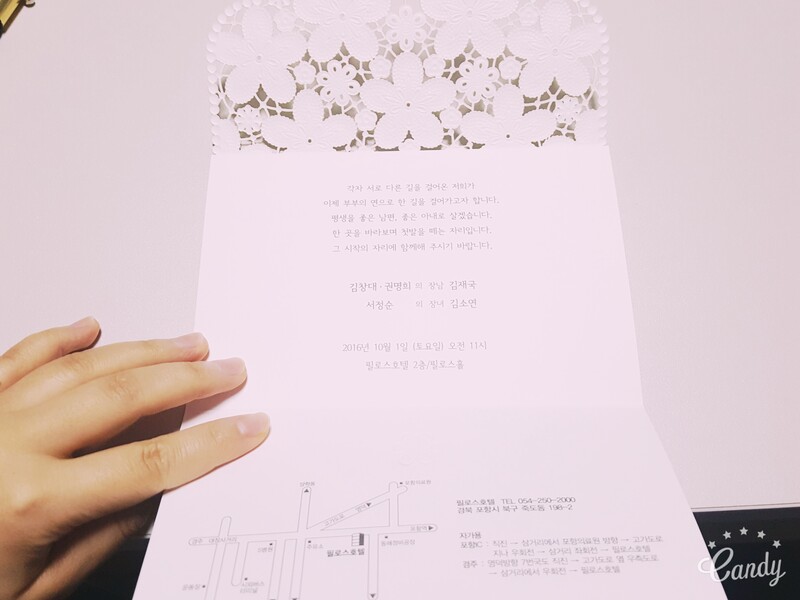 각자 서로 다른 길을 걸어온 저희가
이제 부부의 연으로 한 길을 걸어가고자 합니다.
평생을 좋은 남편, 좋은 아내로 살겠습니다.
한 곳을 바라보며 첫발을 떼는 자리입니다.
그 시작의 자리에 함께해 주시기 바랍니다.
김창대 · 권명희 의 장남 김재국
서정순 의 장녀 김소연
2016년 10월 1일 (토요일) 오전 11시
필로스호텔 2층/필로스홀
고가도로
포항역
주유소
필로스호텔
필로스호텔 TEL 054-250-2000
경북 포항시 북구 죽도동 198-2
자가용
포항IC : 직진 → 삼거리에서 포항의료원 방향 → 고가도로
지나 우회전 → 삼거리 좌회전 → 필로스호텔
경주 : 영덕방향 7번국도 직진 → 고가도로 옆 우측도로
→ 삼거리에서 우회전 → 필로스호텔
Candy